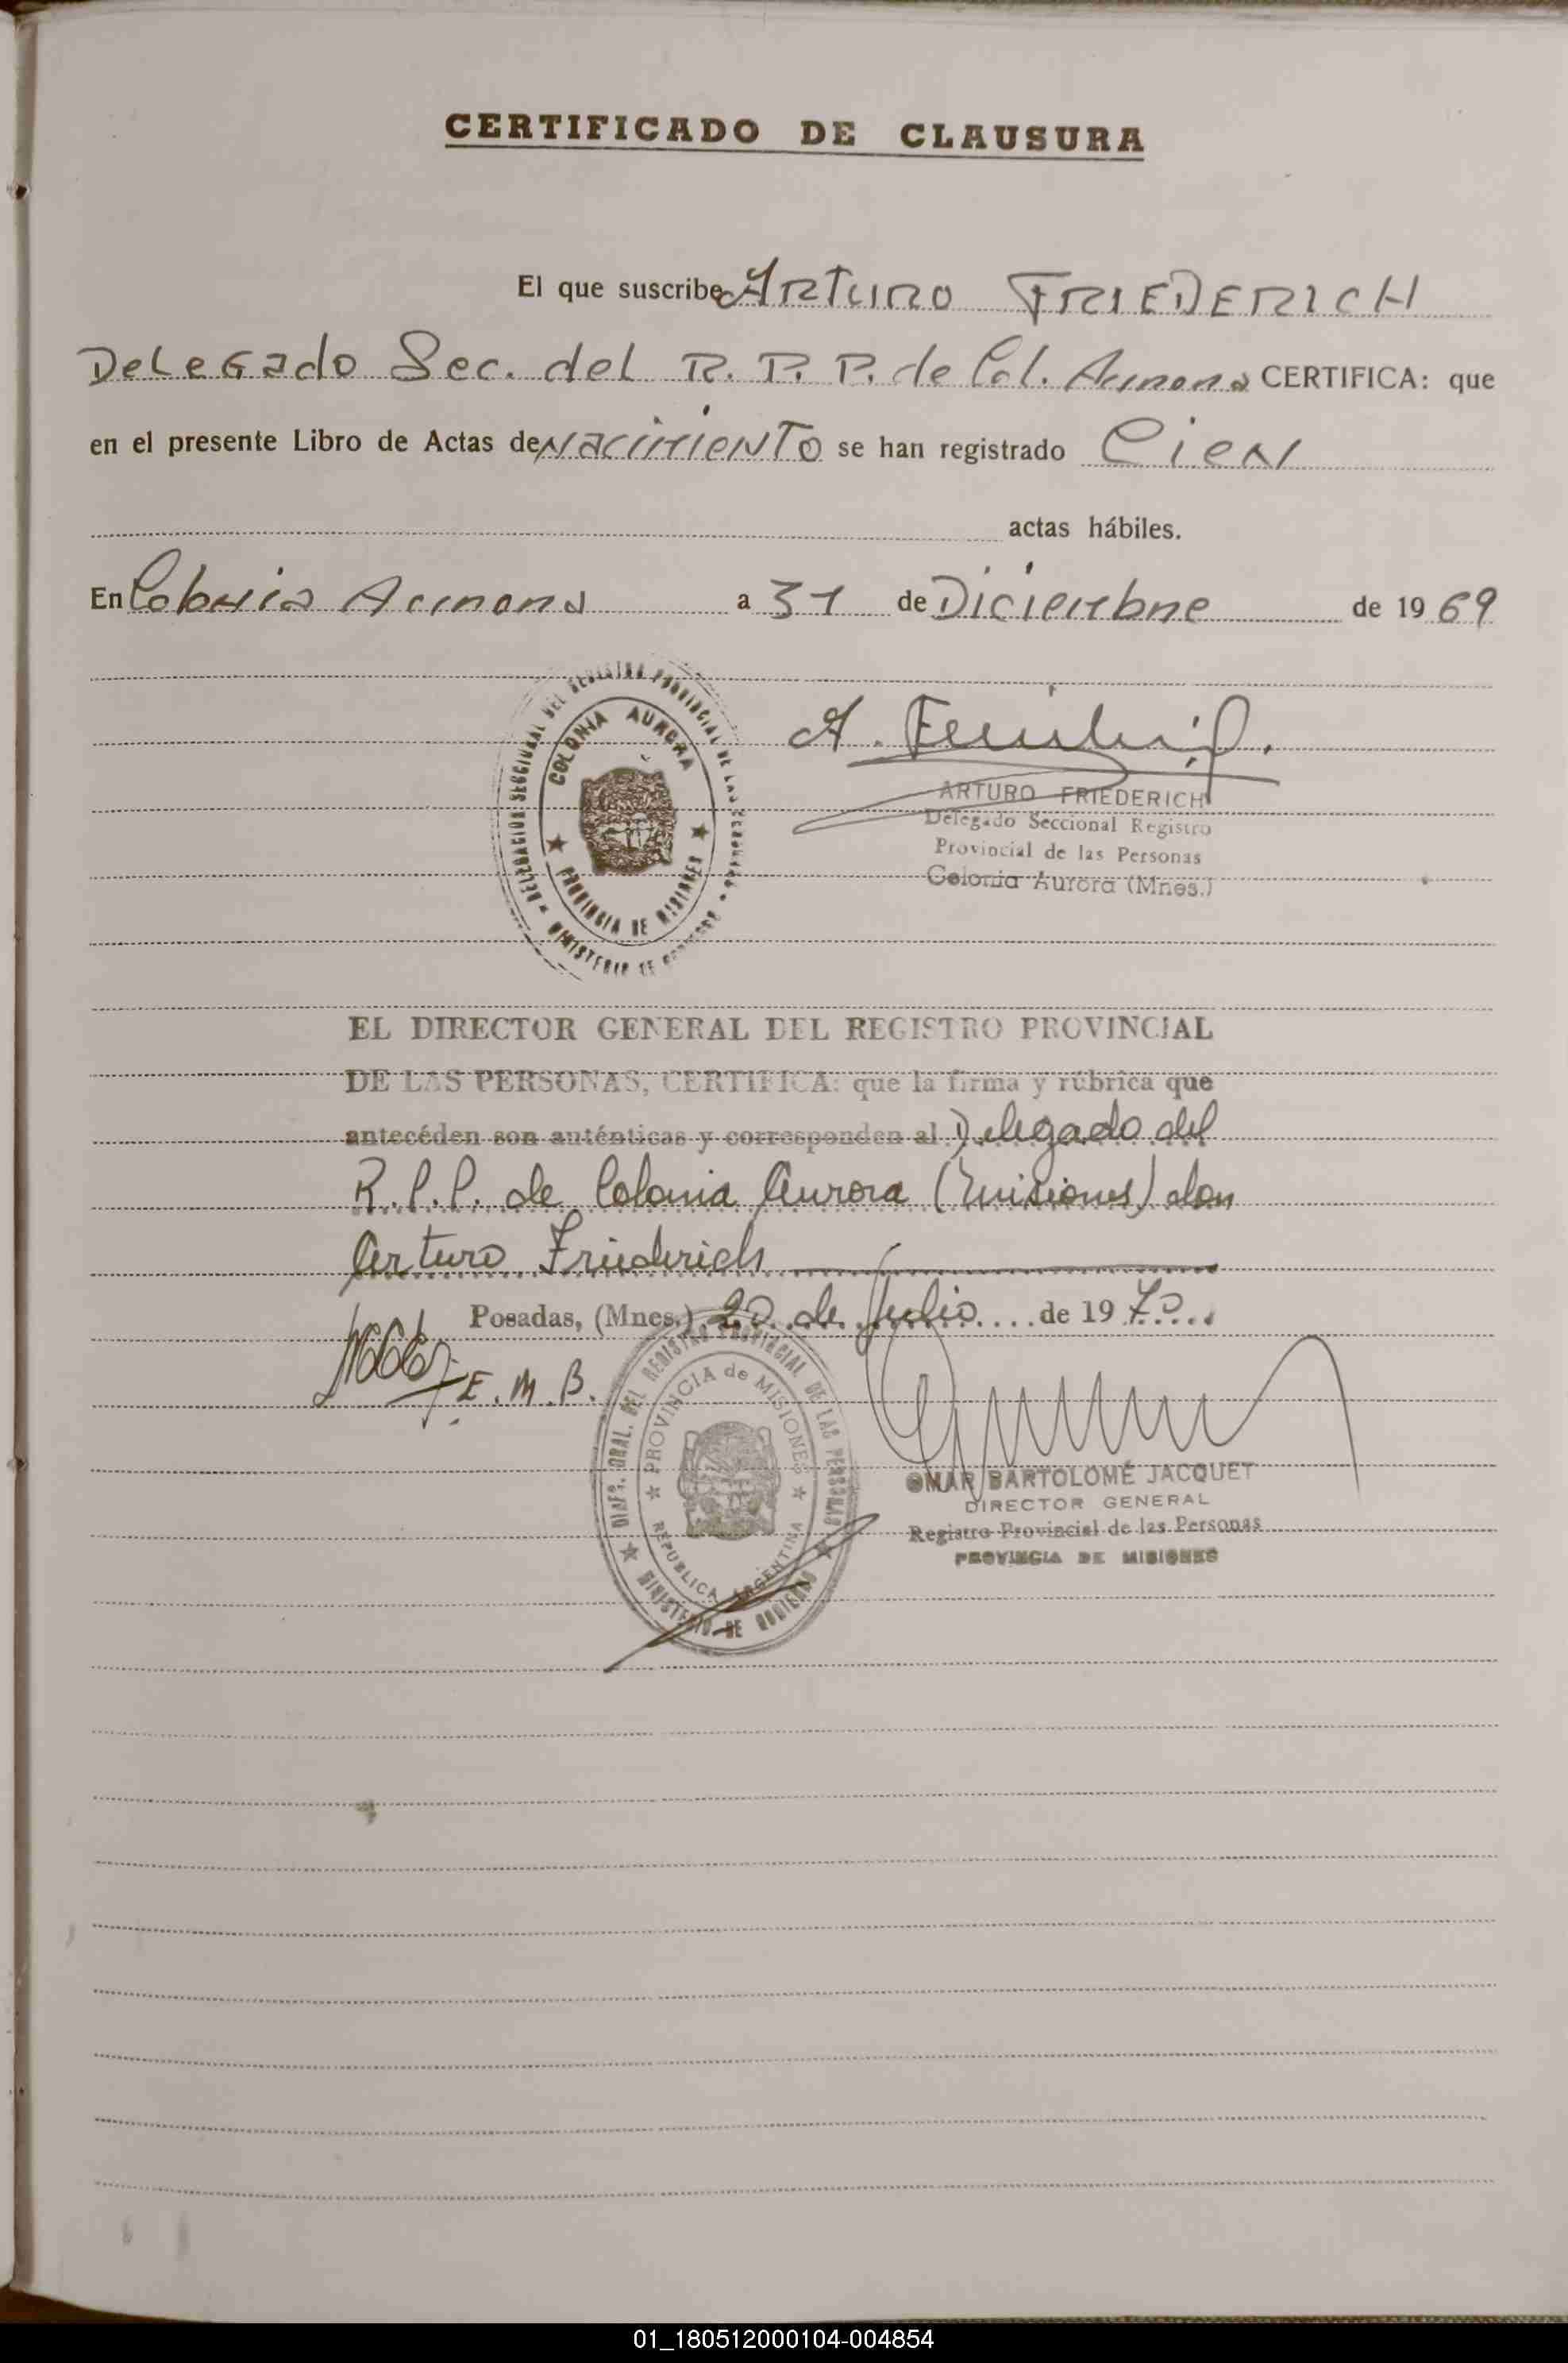 CERTIFICADO DE CLAUSURA
El que suscribe ARTURO FRIEDERICH
Delegado Sec. del R. P. P. de Col. Aurora CERTIFICA: que
en el presente Libro de Actas de Nacimiento se han registrado Cien
actas hábiles.
En Colonia Aurora a 31 de Diciembre de 1969
DELEGACION SECCIONAL DEL REGISTRO PROVINCIAL DE LAS PERSONAS
COLONIA AURORA
PROVINCIA DE MISIONES
MINISTERIO DE GOBIERNO
A. Friederich
ARTURO FRIEDERICH
Delegado Seccional Registro
Provincial de las Personas
Colonia Aurora (Mnes.)
EL DIRECTOR GENERAL DEL REGISTRO PROVINCIAL
DE LAS PERSONAS, CERTIFICA: que la firma y rúbrica que
antecéden son auténticas y corresponden al Delegado del
R.P.P. de Colonia Aurora (Misiones) don
Arturo Friederich
Posadas, (Mnes.) 20 de Julio de 1970
E. M. B.
DIREC. GRAL. DEL REGISTRO PROVINCIAL DE LAS PERSONAS
PROVINCIA de MISIONES
REPUBLICA ARGENTINA
MINISTERIO DE GOBIERNO
OMAR BARTOLOMÉ JACQUET
DIRECTOR GENERAL
Registro Provincial de las Personas
PROVINCIA DE MISIONES
01_180512000104-004854